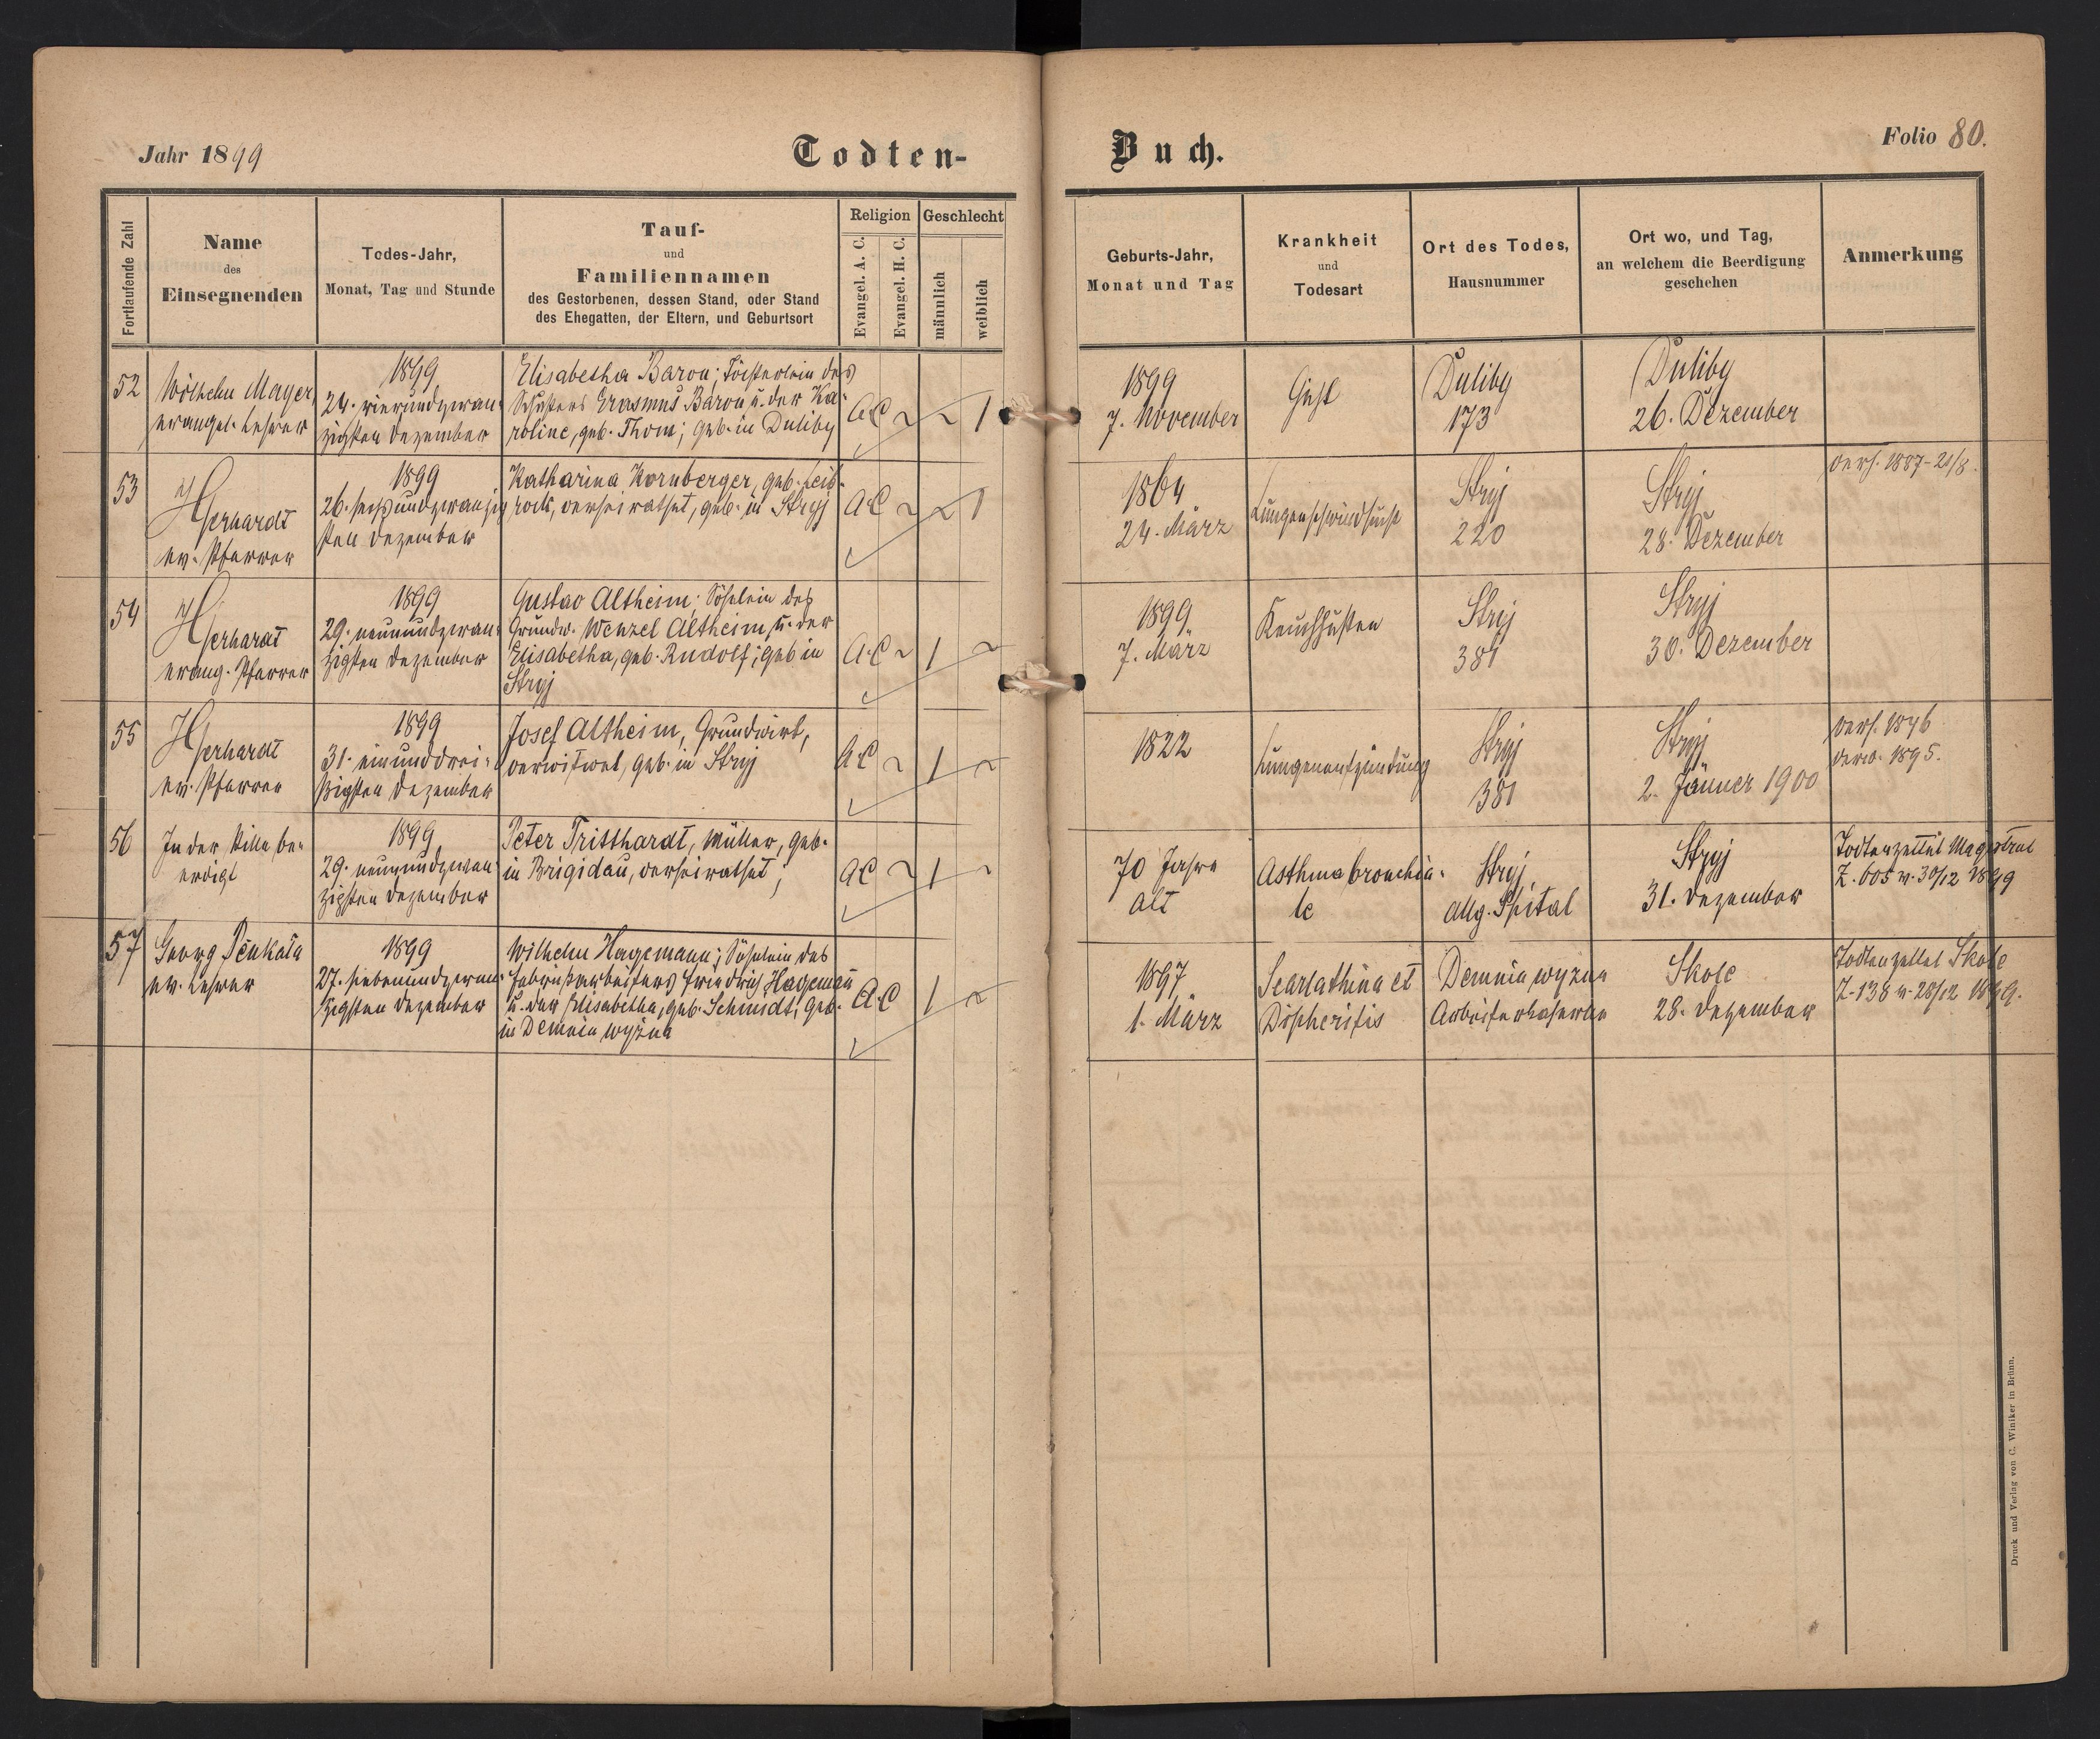 Jahr 1899
Todten-
Buch.
Folio 80.
Fortlaufende Zahl
Name
des
Einsegnenden
Todes-Jahr,
Monat, Tag und Stunde
Tauf-
und
Familiennamen
des Gestorbenen, dessen Stand, oder Stand
des Ehegatten, der Eltern, und Geburtsort
Religion
Evangel. A. C.
Evangel. H. C.
Geschlecht
männlich
weiblich
Geburts-Jahr,
Monat und Tag
Krankheit
und
Todesart
Ort des Todes,
Hausnummer
Ort wo, und Tag,
an welchem die Beerdigung
geschehen
Anmerkung
52
Wilhelm Mayer,
evangel. Lehrer
1899
24. vierundzwan-
zigsten Dezember
Elisabetha Baron; Töchterlein des
Schusters Erasmus Baron u. der Ka-
roline, geb. Thom; geb. in Duliby
A.C
1
1899
7. November
Duliby
173
Duliby
26. Dezember
53
Hperhardt
ev. Pfarrer
1899
26. sechsundzwanzig
sten Dezember
Katharina Kornberger, geb. Leib-
rock, verheirathet, geb. in Stryj
A.C
1
1864
24. März
Lungenschwindsucht
Stryj
220
Stryj
28. Dezember
verh. 1887-21/8.
54
Hperhardt
evang. Pfarrer
1899
29. neunundzwan-
zigsten Dezember
Gustav Altheim; Söhnlein des
Grundw. Wenzel Altheim, u. der
Elisabetha, geb. Rudolf; geb in
Stryj
A.C
1
1899
7. März
Keuchhusten
Stryj
381
Stryj
30. Dezember
55
Hperhardt
ev. Pfarrer
1899
31. einunddrei-
ßigsten Dezember
Josef Altheim, Grundwirt,
verwitwet, geb. in Stryj
A.C
1
1822
Lungenentzündung
Stryj
381
Stryj
2. Jänner 1900
verh. 1846
verw. 1895.
56
In der Stille be-
erdigt
1899
29. neunundzwan-
zigsten Dezember
Peter Tritthardt, Müller, geb.
in Brigidau, verheirathet;
A.C
1
70 Jahre
alt
Asthma bronchia-
le
Stryj
allg. Spital
Stryj
31. Dezember
Todtenzettel Magistrat
Z. 605 v. 30/12 1899
57
Georg Penkala
ev. Lehrer
1899
27. siebenundzwan-
zigsten Dezember
Wilhelm Hagemann; Söhnlein des
Fabriksarbeiters Friedrich Hagemañ
u. der Elisabetha, geb. Schmidt; geb.
in Demnia wyżna
A.C
1
1897
1. März
Scarlathina et
Diphteritis
Demnia wyżna
Arbeiterkaserne
Skole
28. Dezember
Todtenzettel Skole
Z. 138 v. 28/12 1899.
Druck und Verlag von C. Winiker in Brünn.